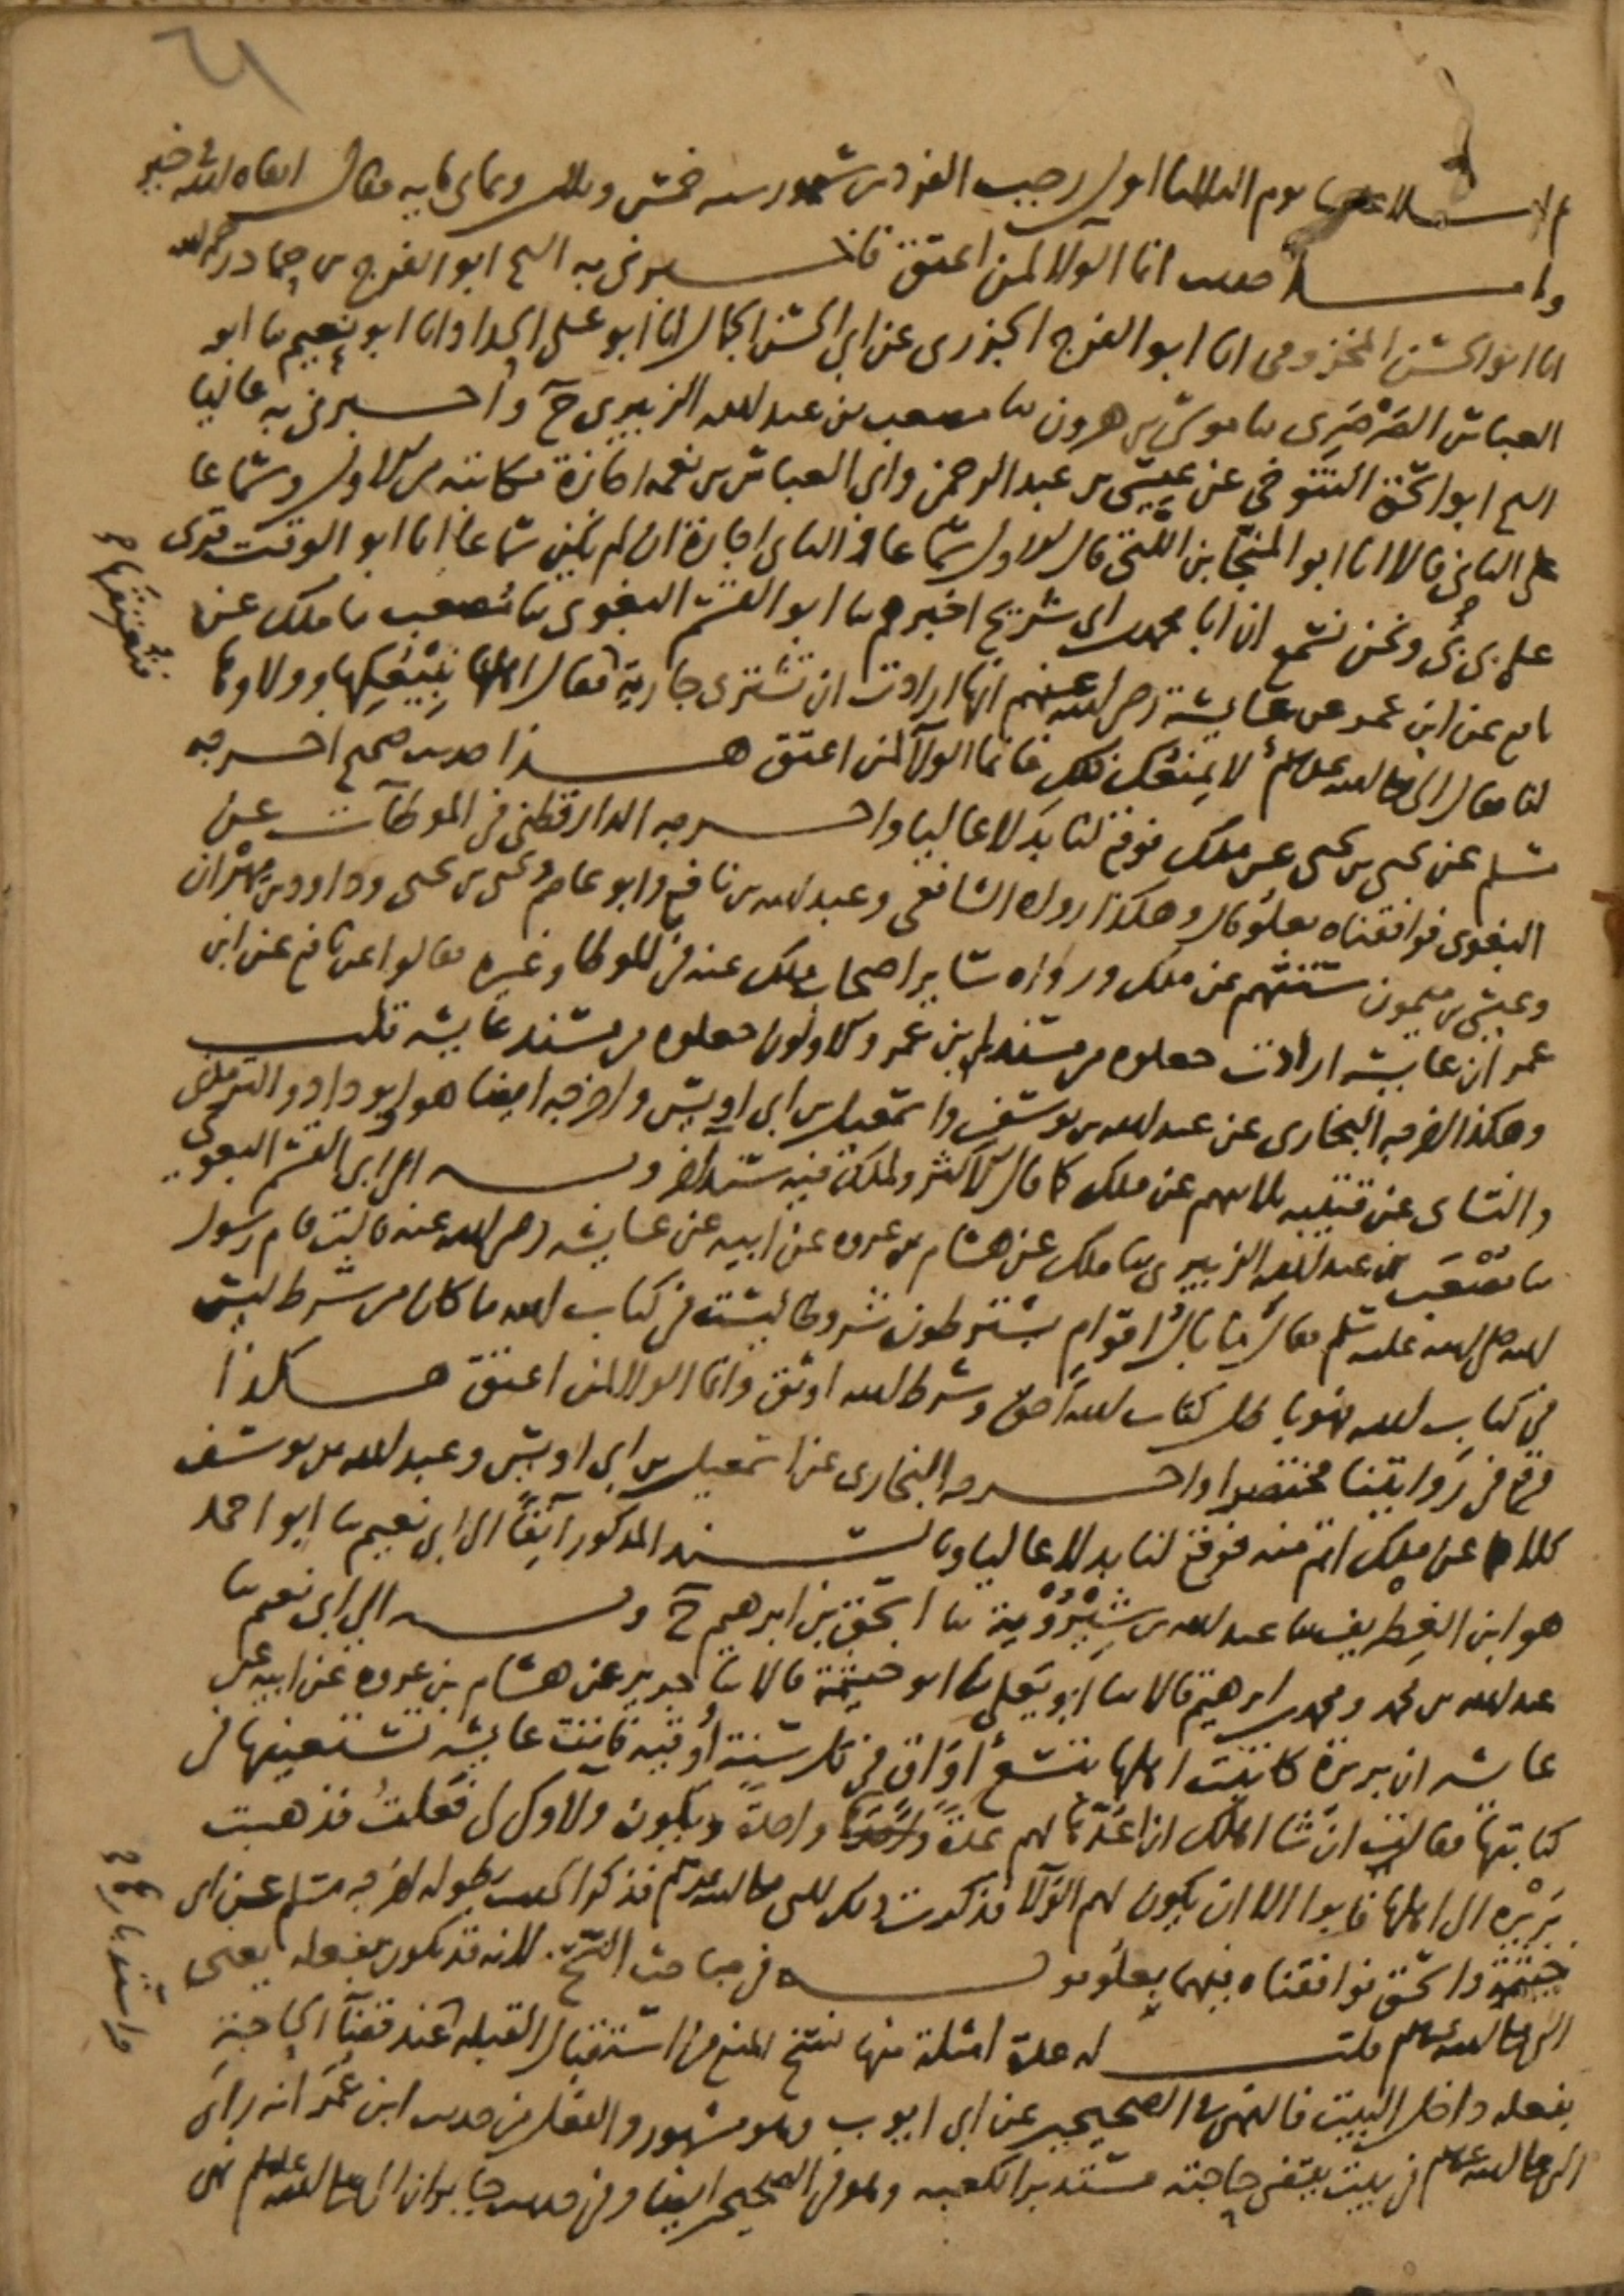 ٦١
يوم الثلاثا اول رجب الفرد من شهور سنه خمس وثلاثين وثمانمايه فقال ابقاه الله في خير
واما حديث انما الولا لمن اعتق فاخبرني به الشيخ ابو الفرج بن حماد رحمه الله
انا ابو الحسن المخزومي انا ابو الفرج الجزري عن ابي الحسن الجمال انا ابو علي الحداد انا ابو نعيم ثنا ابو
العباس الصرصري ثنا موسى بن هرون ثنا مصعب بن عبد الله الزبيري ح واخبرني به عاليا
الشيخ ابو اسحق التنوخي عن عيسى بن عبد الرحمن وابي العباس بن نعمه اجازة مكاتبه من الاول وسماعا
على الثاني قالا انا ابو المنجا بن اللتي قال الاول سماعا والثاني اجازة ان لم يكن سماعا انا ابو الوقت قرى
عليه ونحن نسمع ان ابا محمد بن ابي شريح اخبرهم ثنا ابو القسم البغوي ثنا مصعب ثنا ملك عن
نافع عن ابن عمر عن عايشة رضي الله عنهم انها ارادت ان تشتري جارية فقال اهلها نبيعكها وولاوها
فتعتقها صح
لنا فقال النبي صلى الله عليه وسلم لا يمنعك ذلك فانما الولا لمن اعتق هذا حديث صحيح اخرجه
مسلم عن يحيى بن يحيى عن ملك فوقع لنا بدلا عاليا واخرجه الدارقطني في الموطآت عن
البغوي فوافقناه بعلو قال وهكذا رواه الشافعي وعبد الله بن نافع وابو عاصم ويحيى بن يحيى وداود بن مهران
وعيسى بن ميمون ستتهم عن ملك ورواه ساير اصحاب ملك عنه في الموطا وغيره فقالوا عن نافع عن ابن
عمر ان عايشه ارادت جعلوه من مسند ابن عمر والاولون جعلوه من مسند عايشه قلت
وهكذا اخرجه البخاري عن عبد الله بن يوسف واسمعيل بن ابي اويس واخرجه ايضا هو وابو داود والترمذي
والنساي عن قتيبه ثلاثتهم عن ملك كما قال الاكثر ولملك فيه سند اخر وبه الى ابي القسم البغوي
ثنا مصعب بن عبد الله الزبيري ثنا ملك عن هشام بن عروه عن ابيه عن عايشه رضي الله عنه قالت قام رسول
الله صلى الله عليه وسلم فقال ما بال اقوام يشترطون شروطا ليست في كتاب الله ما كان من شرط ليس
في كتاب الله فهو باطل كتاب الله احق وشرط الله اوثق وانما الولا لمن اعتق هكذا
وقع في روايتنا مختصرا واخرجه البخاري عن اسمعيل بن ابي اويس وعبد الله بن يوسف
كلاهما عن ملك اتم منه فوقع لنا بدلا عاليا وبالسند المذكور آنفا الى ابي نعيم ثنا ابو احمد
هو ابن الغطريف ثنا عبد الله بن شيرويه ثنا اسحق بن ابرهيم ح وبه الى ابي نعيم ثنا
عبد الله بن محمد ومحمد بن ابرهيم قالا ثنا ابو يعلى ثنا ابو خيثمة قالا ثنا جرير عن هشام بن عروه عن ابيه عن
عايشه ان بريرة كاتبت اهلها بتسع اواق في كل سنة أوقيه فاتت عايشه تستعينها في
كتابتها فقالت ان شا اهلك ان اعدها لهم عدة واحدة ويكون الولا لي فعلت فذهبت
بريره الى اهلها فابوا الا ان يكون لهم الولا فذكرت ذلك للنبي صلى الله عليه وسلم فذكر الحديث بطوله اخرجه مسلم عن ابي
خيثمة واسحق فوافقناه فيهما بعلو في مباحث النسخ لانه قد يكون بفعله يعني
النبي صلى الله عليه وسلم قلت له عدة امثلة منها نسخ المنع من استقبال القبله عند قضآ الحاجة
واستدبارها صح
بفعله داخل البيت فالنهي في الصحيحين عن ابي ايوب وهو مشهور والفعل من حديث ابن عمر انه راى
النبي صلى الله عليه وسلم في بيت يقضي حاجته مستدبر الكعبه وهو في الصحيحين ايضا وفي حديث جابر ان النبي صلى الله عليه وسلم نهى